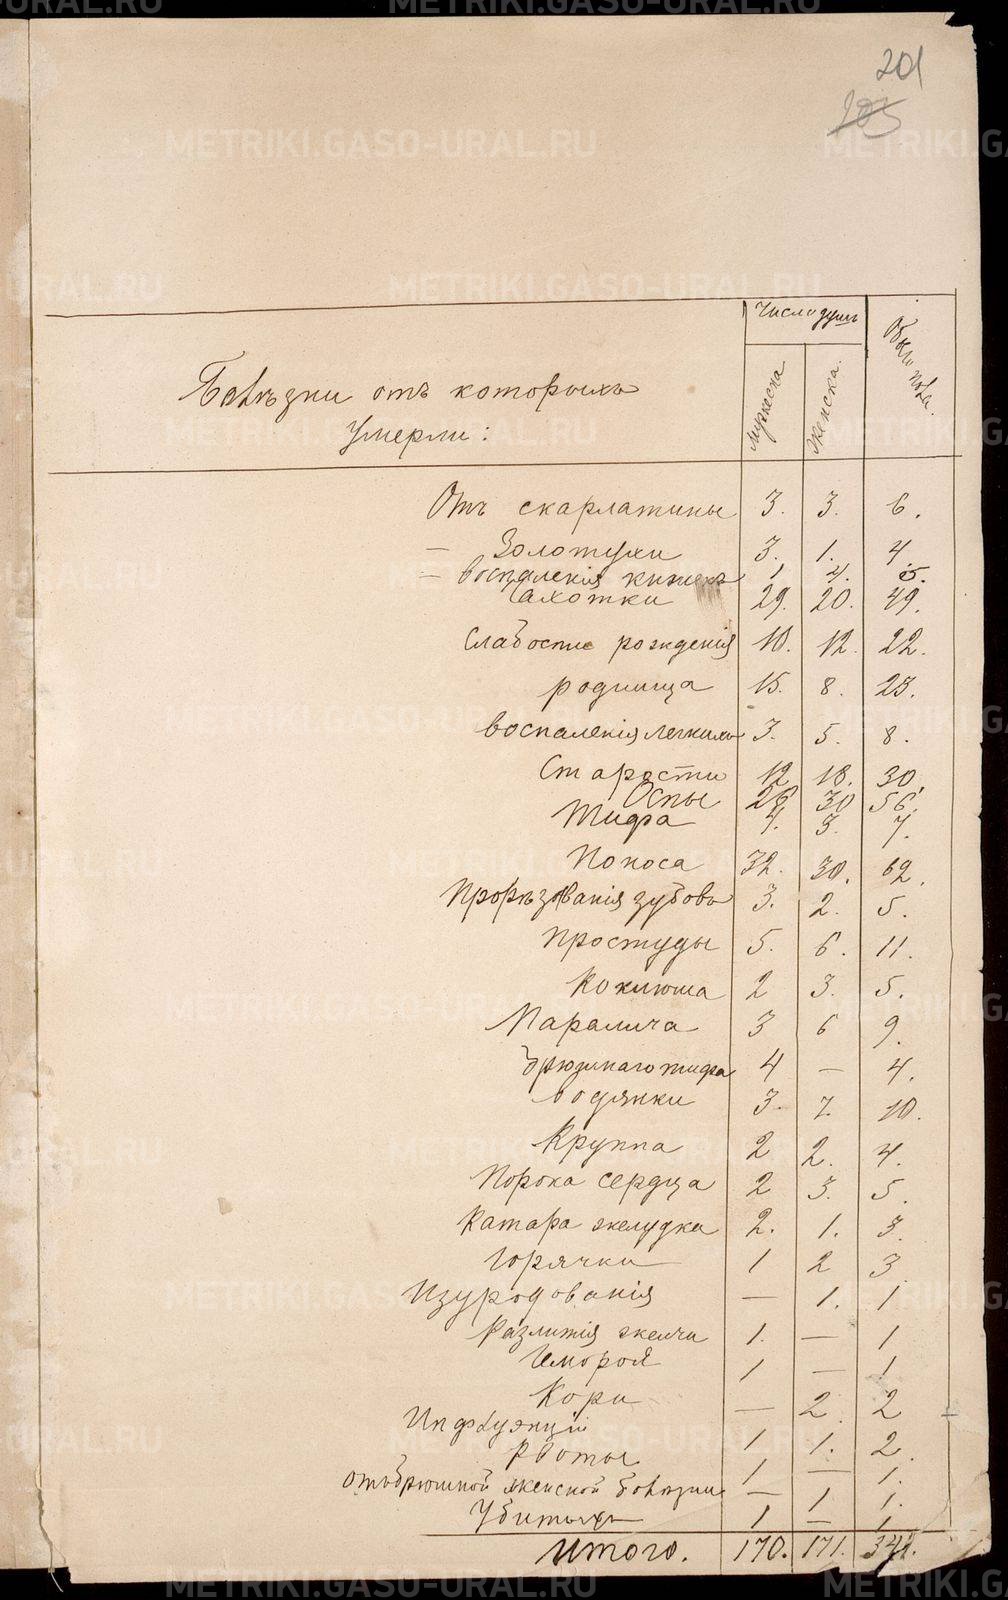 201
203
Число душъ
Обоего пола.
мужеска
женска.
Болѣзни отъ которыхъ
умерли:
Отъ скарлатины 3. 3. 6.
— Золотухи 3. 1. 4.
— воспаленія кишекъ 1. 4. 5.
Чахотки 29. 20. 49.
Слабости рожденія 10. 12. 22.
родимца 15. 8. 23.
воспаленія легкихъ 3. 5. 8.
Старости 12 18. 30.
Оспы 26 30 56.
Тифа 4. 3. 7.
Поноса 32. 30. 62.
Прорѣзованія зубовъ 3. 2. 5.
Простуды 5. 6. 11.
Коклюша 2 3. 5.
Паралича 3 6 9.
брюшнаго тифа 4 — 4.
водянки 3. 7. 10.
Круппа 2 2. 4.
Порока сердца 2 3. 5.
Катара желудка 2. 1. 3.
Горячки 1 2 3
Изуродованія — 1. 1
Разлитія желчи 1. — 1
Гемороя 1 — 1
Кори — 2. 2
Инфлуэнціи 1 1. 2
Рвоты 1 — 1.
отъ брюшной женской болѣзни — 1 1.
Убитыхъ 1 — 1
Итого. 170. 171. 341.
METRIKI.GASO-URAL.RU